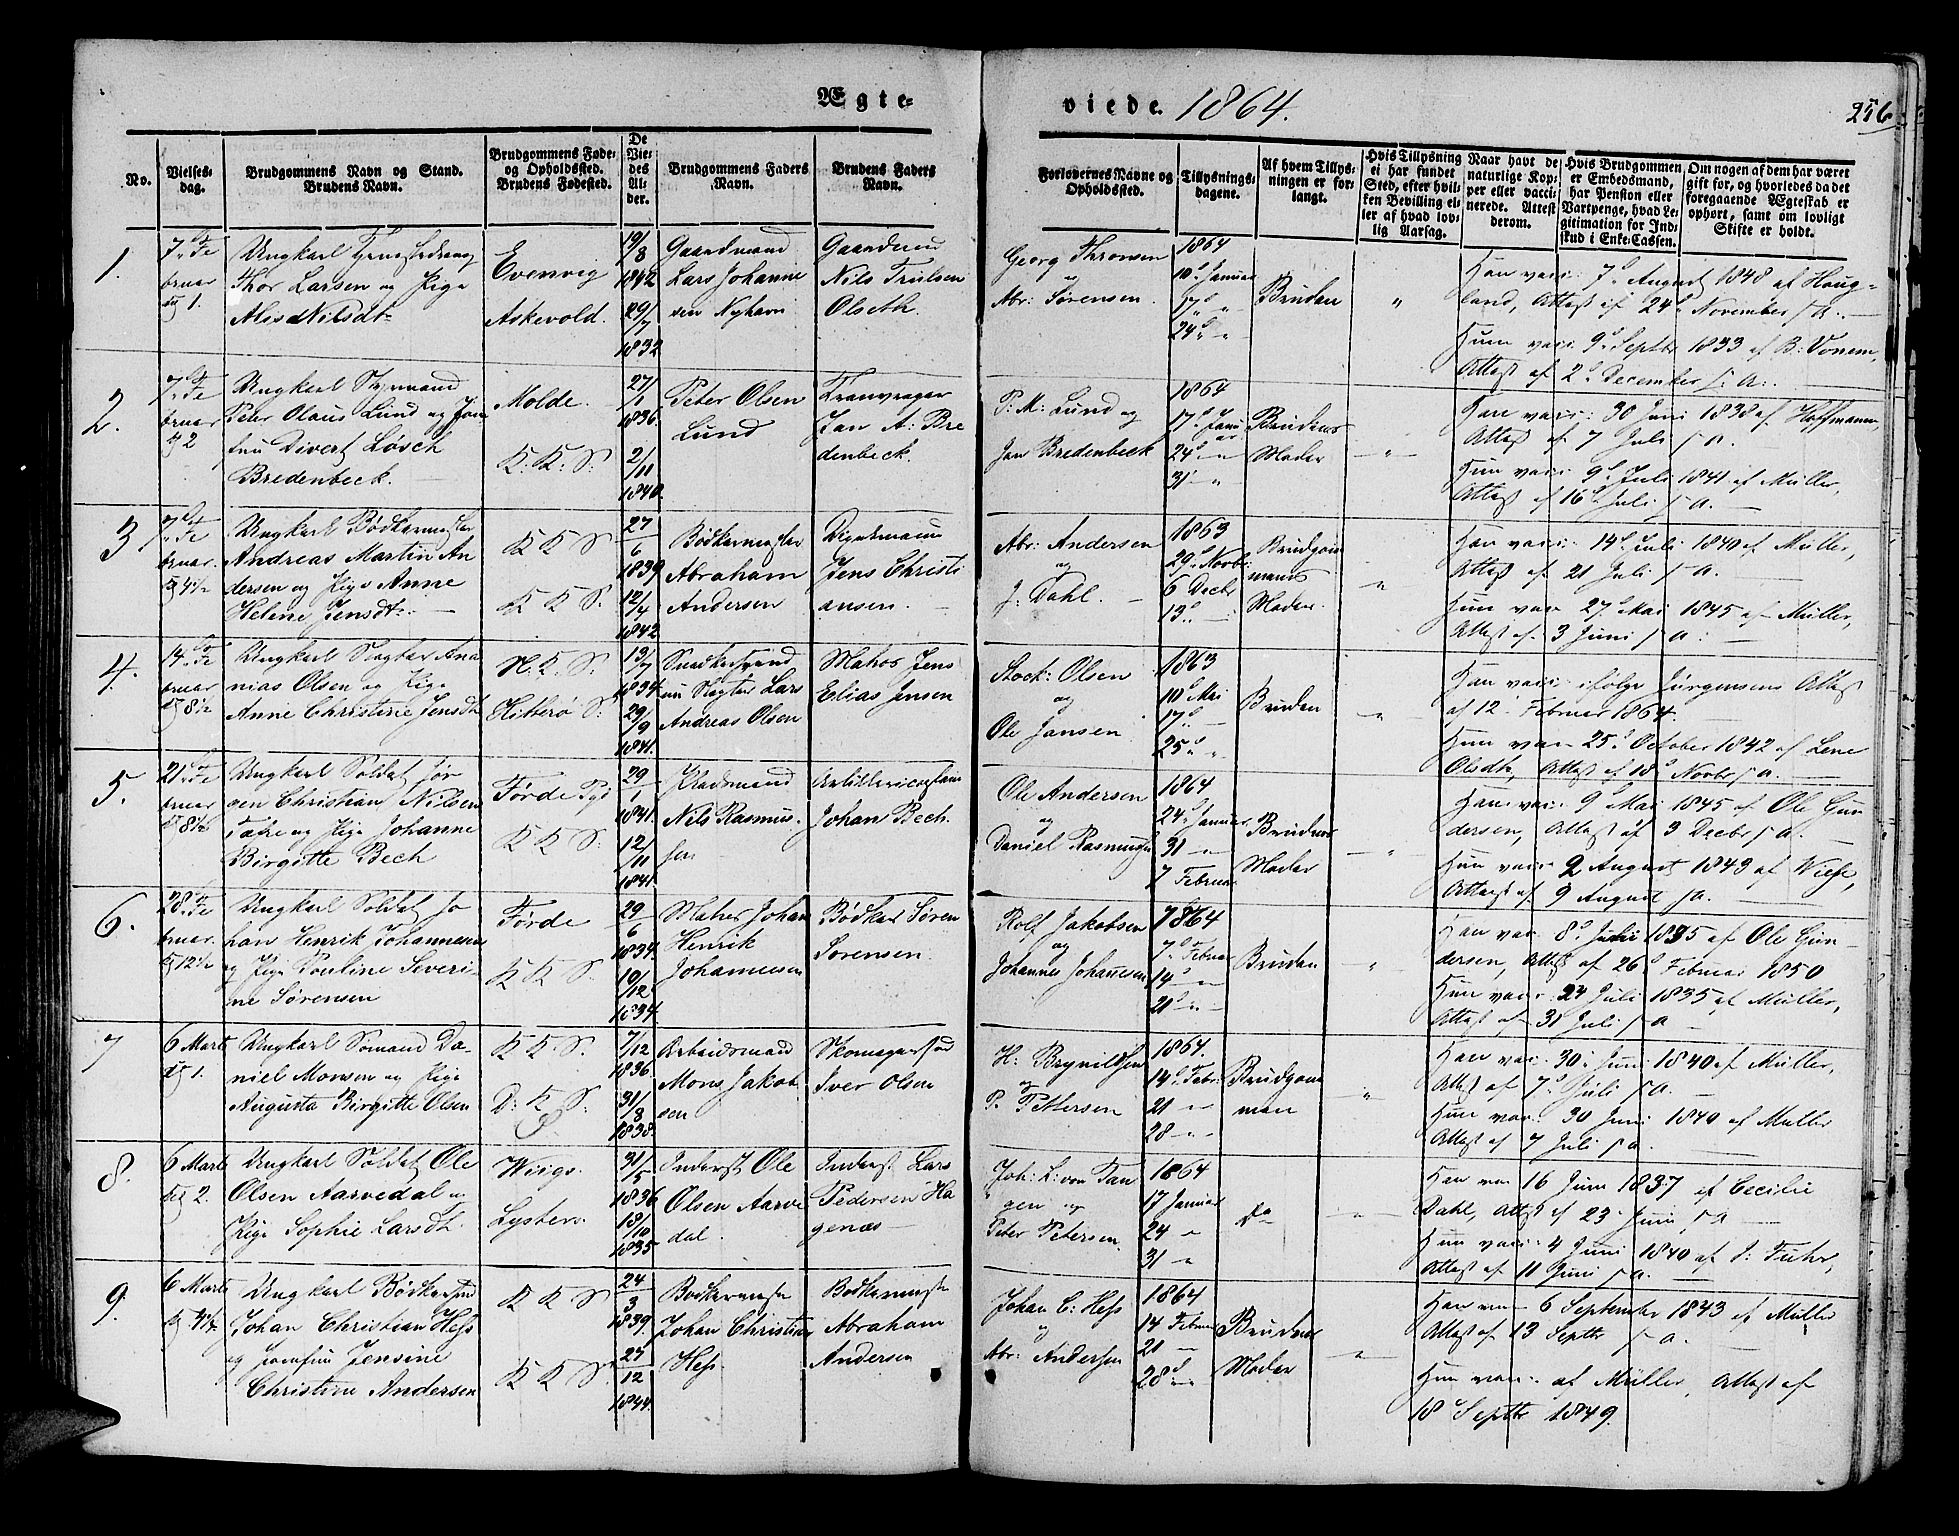 Ægte-
viede 1864.
256
No.
Vielses-
dag.
Brudgommens Navn og Stand.
Brudens Navn.
Brudgommens Føde-
og Opholdssted.
Brudens Fødested.
De
Vie-
des
Al-
der.
Brudgommens Faders
Navn.
Brudens Faders
Navn.
Forlovernes Navne og
Opholdssted.
Tillysnings-
dagene.
Af hvem Tillys-
ningen er for-
langt.
Hvis Tillysning
ei har fundet
Sted, efter hvil-
ken Bevilling el-
ler af hvad lov-
lig Aarsag.
Naar havt de
naturlige Kop-
per eller vacci-
nerede. Attest
derom.
Hvis Brudgommen
er Embedsmand,
har Pension eller
Vartpenge, hvad Le-
gitimation for Ind-
skud i Enke-Cassen.
Om nogen af dem har været
gift før, og hvorledes da det
foregaaende Ægteskab er
ophørt, samt om lovligt
Skifte er holdt.
1.
7de Fe
bruar
Kl 1.
Ungkarl Tjenestedreng
Thor Larsen og Pige
Nilsdt
Evenvig
Askevold.
19/8
1842
29/7
1832
Gaardmand
Lars Johanne
sen Nyhavn
Gaardmand
Nils Trulsen
Olseth.
Georg Thronsen
og
Abr: Sørensen.
1864
10d Januar
17d "
24d "
Bruden
"
Han vac: 7d August 1848 af Houg-
land, Attest af 24d November s. a. —
Hun vac: 9d Septbr 1833 af B: Vonem,
Attest af 2d December s. a. —
2.
7de Fe
bruar
Kl 2
Ungkarl Styrmand
Peter Olaus Lund og Jom
fru Divert Løsch
Bredenbeck.
Molde.
K: K: S:
27/1
1836.
2/11
1840.
Peter Olsen
Lund
Tranvrager
Jan A: Bre
denbeck.
P: M: Lund og
Jan Bredenbeck
1864
17d Janu
ar
24d "
31 "
Brudens
Moder
"
Han vac: 30 Juni 1838 af Hoffmann,
Attest af 7 Juli s. a. —
Hun vac: 9d Juli 1841 af Müller,
Attest af 16d Juli s. a. —
3
7de Fe
bruar.
Kl 4½
Ungkarl Bødkermester
Andreas Martin An
dersen og Pige Anne
Helene Jensdt. —
K K S.
K K S.
27/6
1839
12/4
1842
Bødkermester
Abraham
Andersen
Jens Christi
ansen. —
Abr: Andersen
og
J: Dahl. —
1863
29d Novbr
6 Decbr
13d —
Brudgom
mens
Moder.
"
Han vac: 14d Juli 1840 af Müller,
Attest af 21 Juli s. a. —
Hun vac: 27d Mai 1845 af Müller,
Attest af 3 Juni s. a: —
4.
14de Fe
bruar
Kl 8½
Ungkarl Slagter Ana
nias Olsen og Pige
Anne Christine Jensdt
N: K: S:
Hitterø S:
13/7
1834.
29/9
1841.
Lars
Andreas Olsen
Jens
Elias Jensen
Stock: Olsen
og
Ole Jansen
1863
10d Mai
17d —
25d "
Bruden
"
Han vac: ifølge Jürgensens Attest
af 12 Februar 1864.
Hun vac: 25d October 1842 af Lene
Olsdtr, Attest af 18d Novbr s. a. —
5.
21de Fe
bruar
Kl 8½
Ungkarl Soldat Jør
gen Christian Nilsen
og Pige Johanne
Birgitte Bech
Førde
K K S:
29/1
1841.
12/11
1841.
Nils Rasmus-
sen
Johan Bech.
Ole Andersen
og
Daniel Rasmussen
1864
24d Januar
31 "
7 Februar
Brudens
Moder
"
Han vac: 9d Mai 1845 af Ole Gun
dersen, Attest af 3 Decbr s. a. —
Hun vac: 2 August 1843 af Wiese,
Attest af 9 August s. a. —
6.
28de Fe
bruar.
Kl 12½
Ungkarl Soldat Jo
han Henrik Johannesen
og Pige Pouline Severi
ne Sørensen
Førde
K K S.
29/6
1834.
19/12
1834.
Johan
Henrik
Johannesen
Bødker Søren
Sørensen.
Rolf Jakobsen
og
Johannes Johannesen
1864
7d Februar
14d —
21d "
Bruden
"
Han vac: 8d Juli 1835 af Ole Gun-
dersen, Attest af 26d Februar 1850
Hun vac: 24 Juli 1835 af Müller,
Attest af 31 Juli s. a —
7
6 Marts
Kl 1.
Ungkarl Sømand Da-
niel Monsen og Pige
Augusta Birgitte Olsen
K K S.
D: K S:
7/12
1836
31/8
1838.
Arbeidsmand
Mons Jakob
sen
Skomagersvd
Iver Olsen
H: Brynildsen
og
P. Pettersen
1864.
14d Febr:
21 "
28 "
Brudgom
men
"
Han vac: 30d Juni 1840 af Müller,
Attest af 7d Juli s. a. —
Hun vac: 30 Juni 1840 af Müller
Attest af 7 Juli s. a. —
8.
6 Marts
Kl 2.
Ungkarl Soldat Ole
Olsen Aarvedal og
Pige Sophie Larsdt.
Wiigs.
Lysters.
31/5
1836
13/10
1835
Inderst Ole
Olsen Aarve
dal.
Inderst Lars
Pedersen Ha
genæs —
Joh: L: von Tan
gen og
Peter Petersen.
1864
17 Januar
24 "
31 "
Do
"
Han vac 16 Juni 1837 af Cecilie
Dahl, Attest af 23 Juni s. a. —
Hun vac: 4 Juni 1840 af J: Fuhr,
Attest af 11 Juni s. a. —
9.
6 Marts
Kl
Ungkarl Bødkersvd
Johan Christian Hess
og Jomfru Jensine
Christine Andersen
K K S
K K S.
24/3
1839.
27/12
1844.
Bødkermester
Johan Christian
Hess.
Bødkermester
Abraham
Andersen
Johan C: Hess
"
Abr: Andersen
1864
14 Februar
21 —
28d "
Brudens
Moder
"
Han vac 6 September 1843 af Müller
Attest af 13 Septbr s. a. —
Hun vac: af Müller, Attest af
18 Septbr 1849.